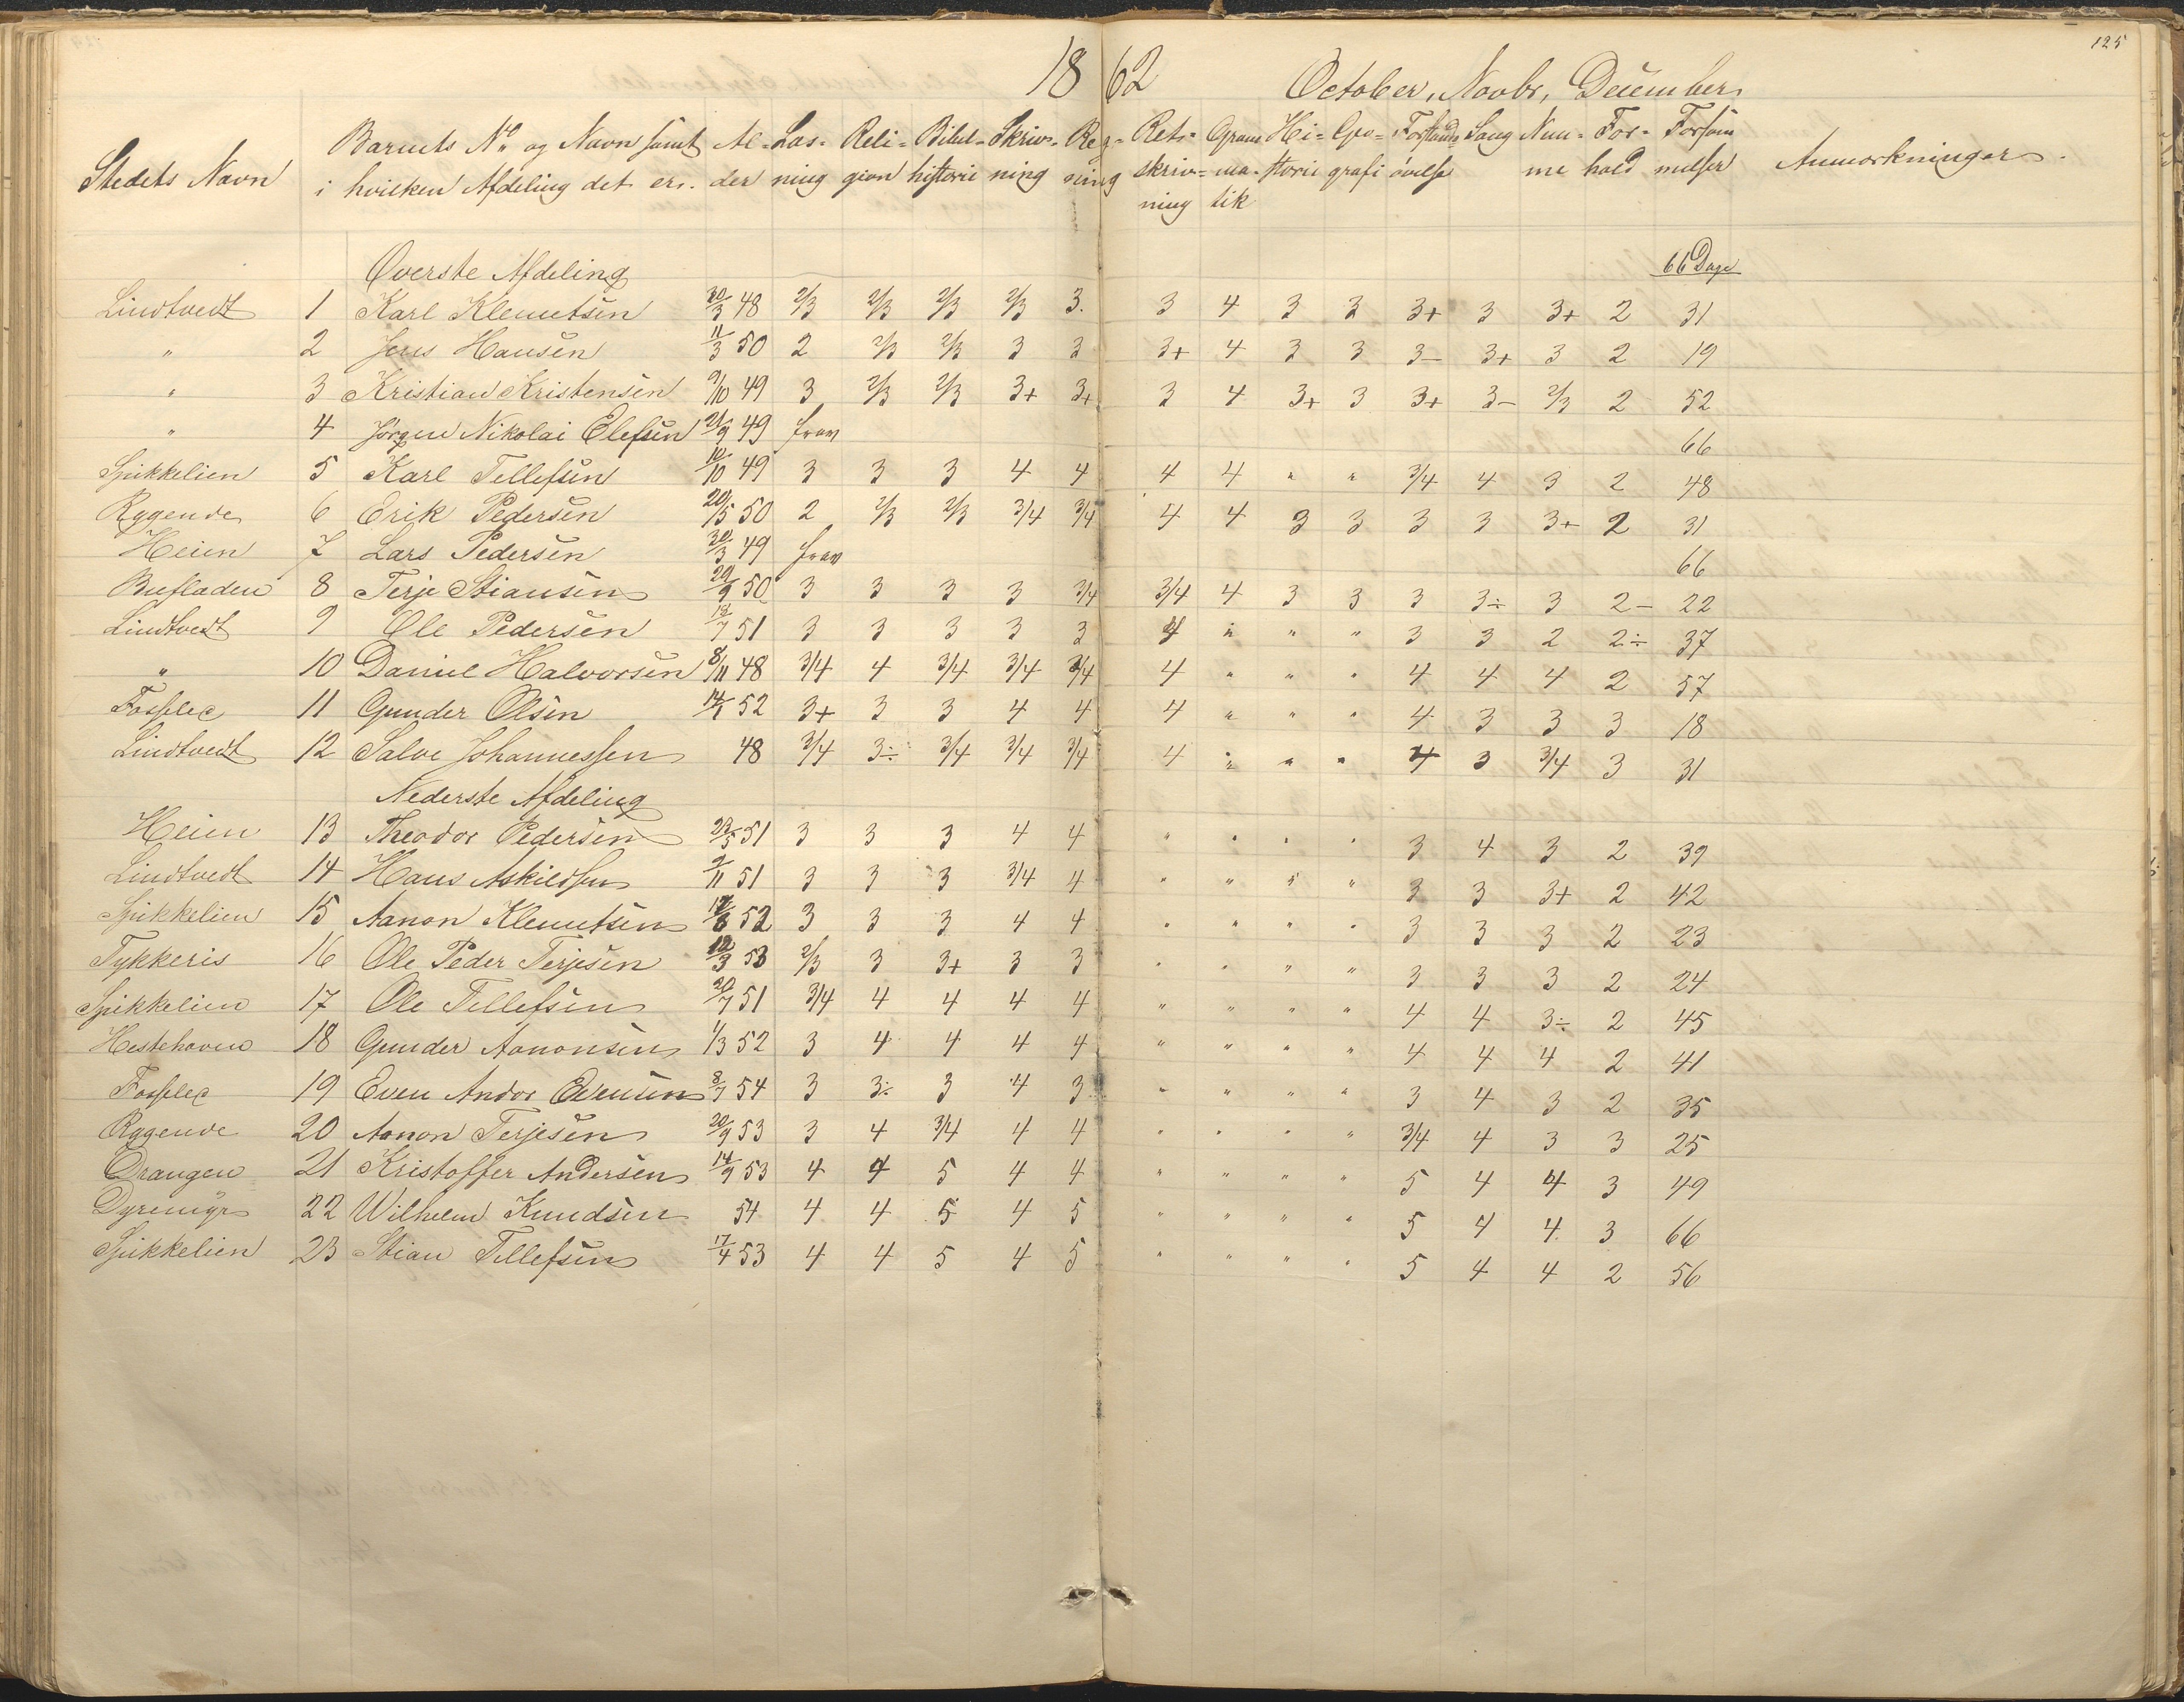 125
18 62 October, Novbr, December
Stedets Navn Barnets No og Navn samt i hvilken Afdeling det er. Al-der Læs-ning Reli-gion Bibel-historie Skriv-ning Reg-ning Ret-skriv-ning Gram-ma-tik Hi-storie Geo-grafi Forstands øvelse Sang Nem-me For-hold Forsøm melser Anmærkninger.
Øverste Afdeling 66 Dage
Lindtvedt 1 Karl Klemetsen 20/3 48 2/3 2/3 2/3 2/3 3. 3 4 3 3 3+ 3 3+ 2 31
" 2 Jens Hansen 11/3 50 2 2/3 2/3 3 3 3+ 4 3 3 3- 3+ 3 2 19
" 3 Kristian Kristensen 9/10 49 3 2/3 2/3 3+ 3+ 3 4 3+ 3 3+ 3- 2/3 2 52
" 4 Jørgen Nikolai Elefsen 21/9 49 frav 66
Spikkelien 5 Karl Tellefsen 10/10 49 3 3 3 4 4 4 4 " " 3/4 4 3 2 48
Rygende 6 Erik Pedersen 20/5 50 2 2/3 2/3 3/4 3/4 4 4 3 3 3 3 3+ 2 31
Heien 7 Lars Pedersen 30/3 49 frav 66
Bufladen 8 Terje Stiansen 29/9 50 3 3 3 3 3/4 3/4 4 3 3 3 3÷ 3 2- 22
Lindtvedt 9 Ole Pedersen 12/7 51 3 3 3 3 3 4 " " " 3 3 2 2÷ 37
" 10 Daniel Halvorsen 8/11 48 3/4 4 3/4 3/4 3/4 4 " " " 4 4 4 2 57
Fosselie 11 Gunder Olsen 14/1 52 3+ 3 3 4 4 4 " " " 4 3 3 3 18
Lindtvedt 12 Salve Johannessen 48 3/4 3÷ 3/4 3/4 3/4 4 " " " 4 3 3/4 3 31
Nederste Afdeling
Heien 13 Theodor Pedersen 23/5 51 3 3 3 4 4 " " " " 3 4 3 2 39
Lindtvedt 14 Hans Askildsen 9/11 51 3 3 3 3/4 4 " " " " 3 3 3+ 2 42
Spikkelien 15 Aanon Klemetsen 17/6 52 3 3 3 4 4 " " " " 3 3 3 2 23
Tykkeris 16 Ole Peder Terjesen 12/3 53 2/3 3 3+ 3 3 " " " " 3 3 3 2 24
Spikkelien 17 Ole Tellefsen 20/7 51 3/4 4 4 4 4 " " " " 4 4 3÷ 2 45
Hestehaven 18 Gunder Aanonsen 1/3 52 3 4 4 4 4 " " " " 4 4 4 2 41
Fosselie 19 Even Andor Evensen 8/7 54 3 3÷ 3 4 3 " " " " 3 4 3 2 35
Rygende 20 Aanon Terjesen 20/9 53 3 4 3/4 4 4 " " " " 3/4 4 3 3 25
Drangen 21 Kristoffer Andersen 14/9 53 4 4 5 4 4 " " " " 5 4 4 3 49
Dyremyr 22 Wilhelm Knudsen 54 4 4 5 4 5 " " " " 5 4 4 3 66
Spikkelien 23 Stian Tellefsen 17/4 53 4 4 5 4 5 " " " " 5 4 4 2 56